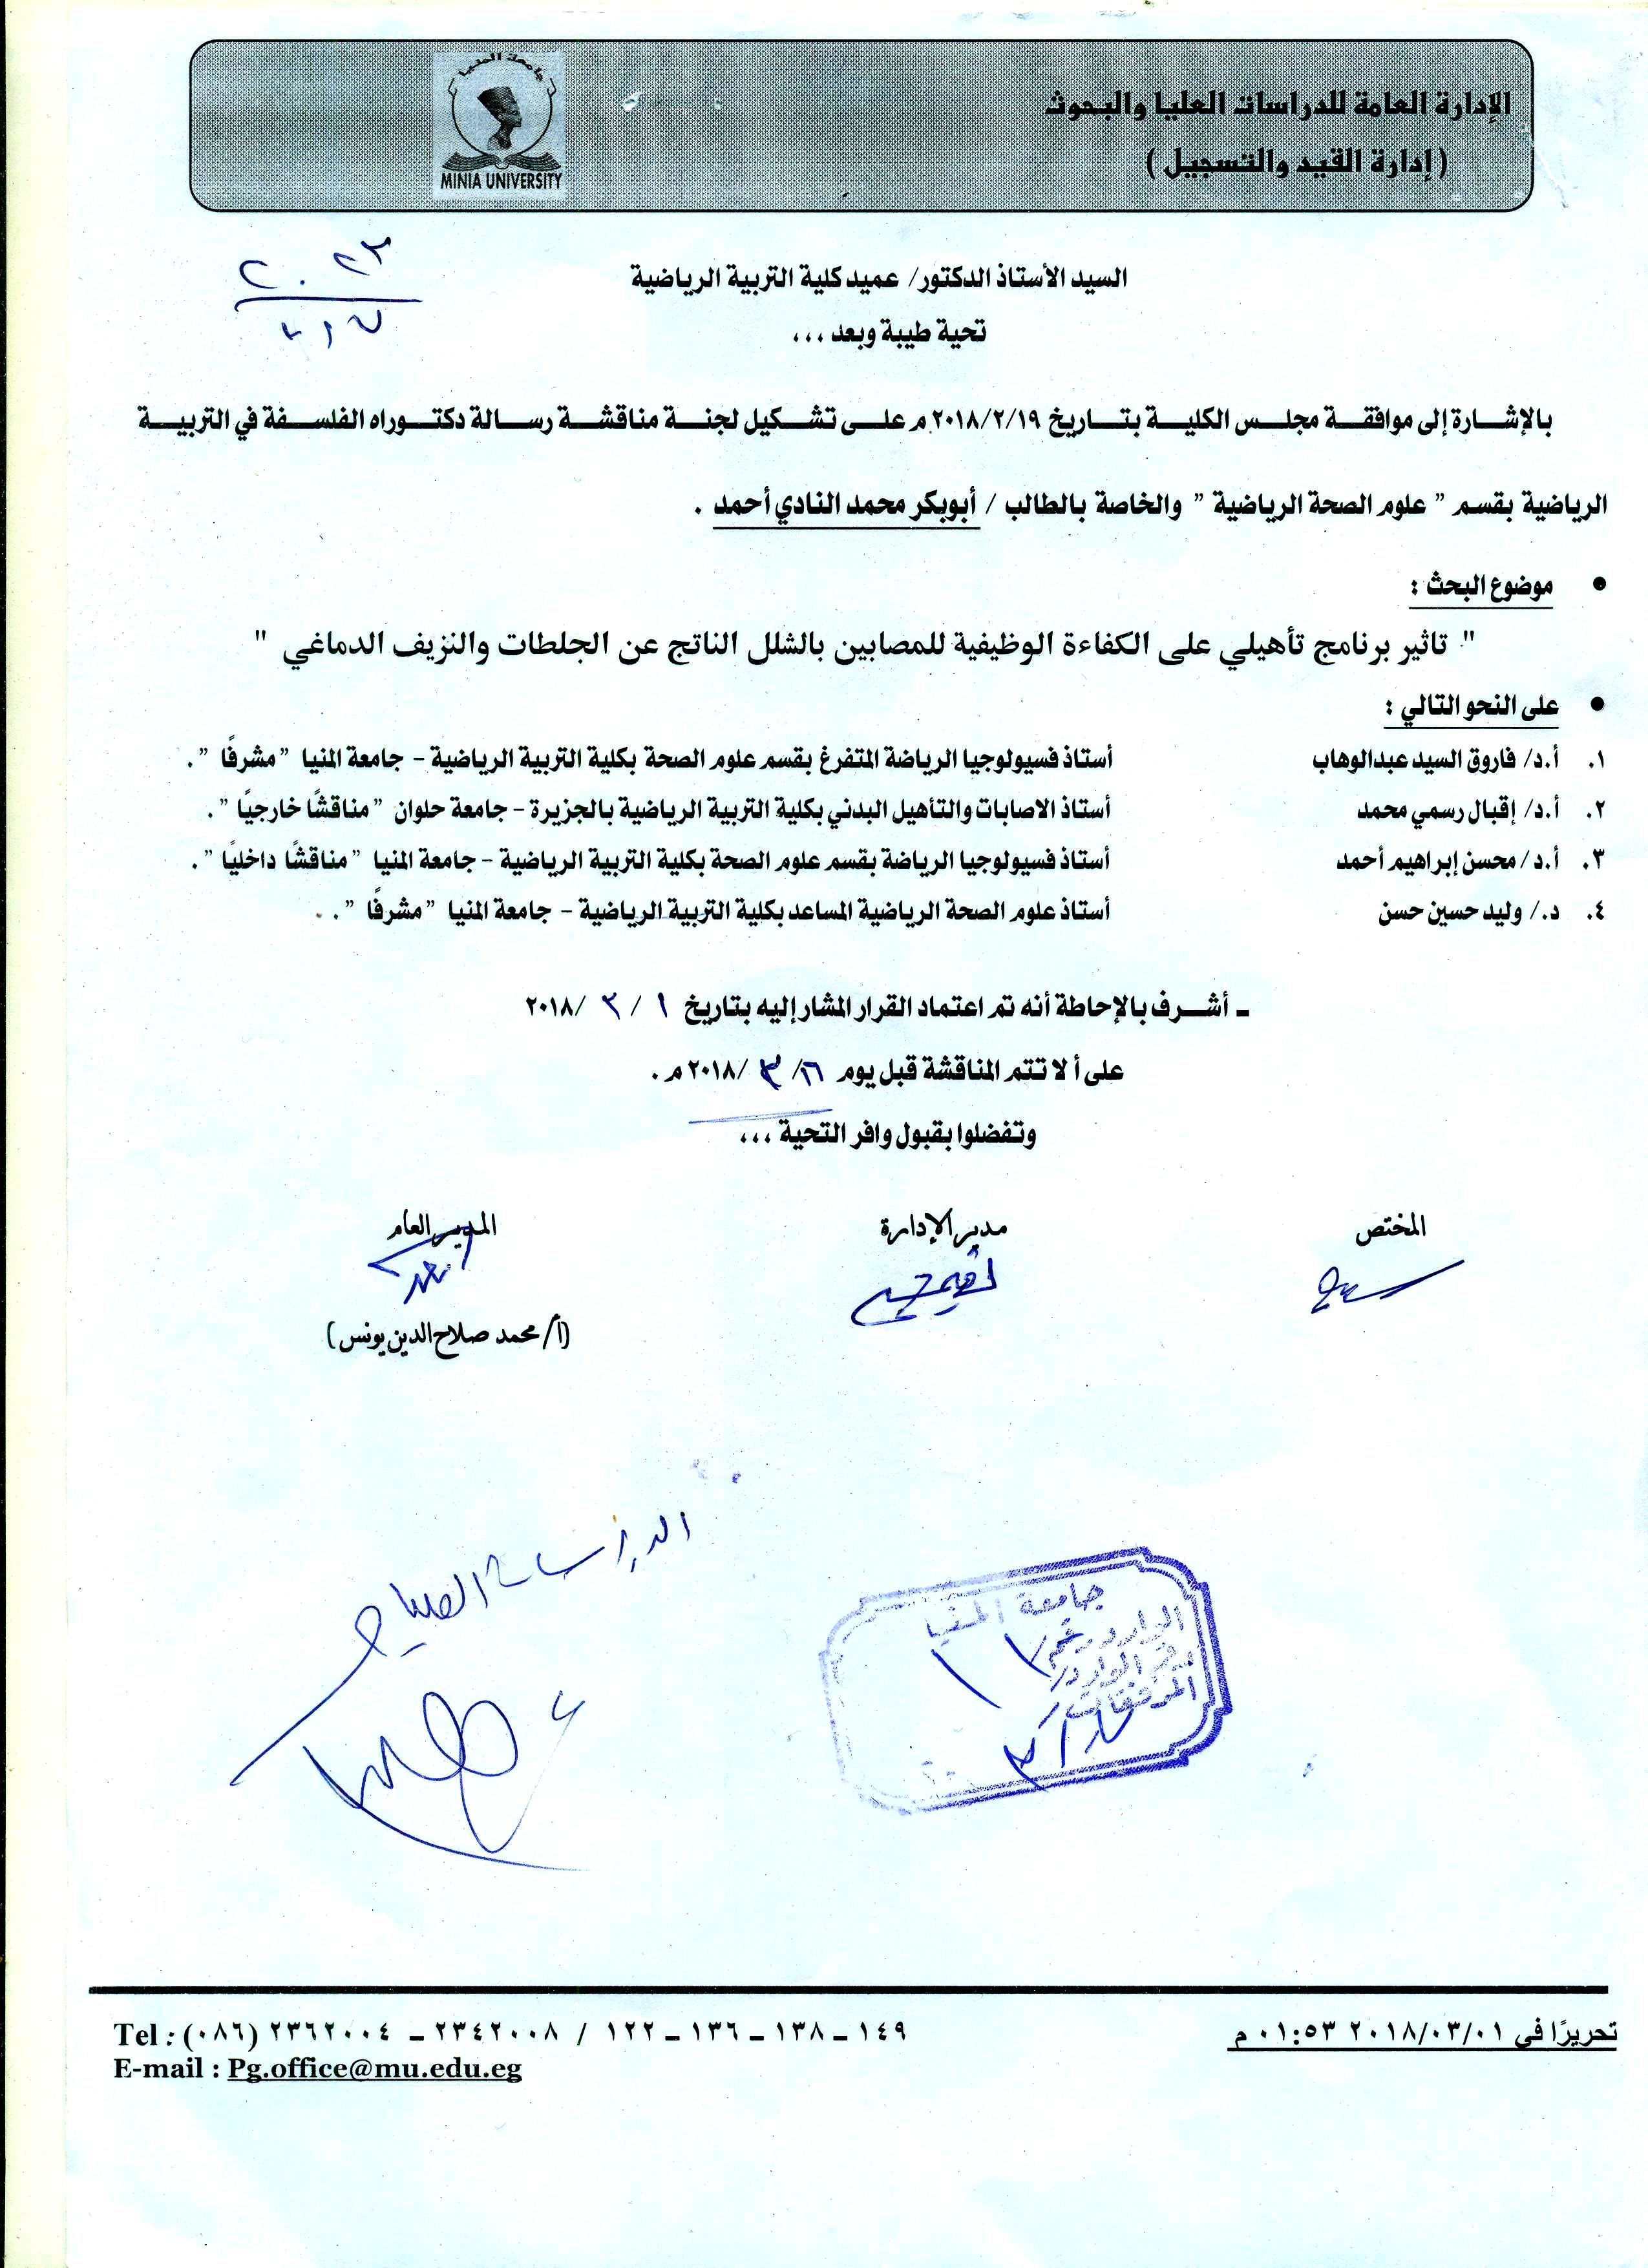 الإدارة العامة للدراسات العليا والبحوث
جامعة المنيا
( إدارة القيد والتسجيل )
MINIA UNIVERSITY
السيد الأستاذ الدكتور/ عميد كلية التربية الرياضية
تحية طيبة وبعد ...
بالإشارة إلى موافقة مجلس الكلية بتاريخ ٢٠١٨/٢/١٩م على تشكيل لجنة مناقشة رسالة دكتوراه الفلسفة في التربية
الرياضية بقسم " علوم الصحة الرياضية " والخاصة بالطالب / أبوبكر محمد النادي أحمد .
• موضوع البحث :
" تاثير برنامج تأهيلي على الكفاءة الوظيفية للمصابين بالشلل الناتج عن الجلطات والنزيف الدماغي "
• على النحو التالي :
١. أ.د/ فاروق السيد عبدالوهاب أستاذ فسيولوجيا الرياضة المتفرغ بقسم علوم الصحة بكلية التربية الرياضية – جامعة المنيا "مشرفًا ".
٢. أ.د/ إقبال رسمي محمد أستاذ الاصابات والتأهيل البدني بكلية التربية الرياضية بالجزيرة – جامعة حلوان "مناقشًا خارجيًا ".
٣. أ.د/ محسن إبراهيم أحمد أستاذ فسيولوجيا الرياضة بقسم علوم الصحة بكلية التربية الرياضية – جامعة المنيا "مناقشًا داخليًا ".
٤. د./ وليد حسين حسن أستاذ علوم الصحة الرياضية المساعد بكلية التربية الرياضية – جامعة المنيا "مشرفًا ".
ـ أشرف بالإحاطة أنه تم اعتماد القرار المشار إليه بتاريخ ١ / ٣ /٢٠١٨
على ألا تتم المناقشة قبل يوم ١٦/ ٣ /٢٠١٨م .
وتفضلوا بقبول وافر التحية ...
المختص مدير الإدارة المدير العام
(أ/ محمد صلاح الدين يونس)
الدراسات العليا
جامعة المنيا
الوارد
المرفقات
تحريرًا في ٢٠١٨/٠٣/٠١ ٠١:٥٣ م
Tel : (٠٨٦) ٢٣٦٢٠٠٤ – ٢٣٤٢٠٠٨ / ١٢٢ – ١٣٦ – ١٣٨ – ١٤٩
E-mail : Pg.office@mu.edu.eg